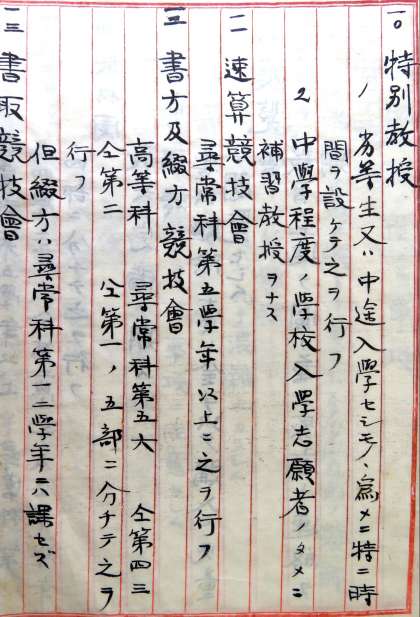 一〇 特別教授
1 劣等生又ハ中途入學セシモノヽ爲メニ特ニ時
間ヲ設ケテ之ヲ行フ
2 中學程度ノ学校入學志願者ノタメニ
補習教授ヲナス
一一 速算競技會
尋常科第五学年以上ニ之ヲ行フ
一二 書方及綴方競技會
高等科 尋常科第五六 仝第四三
仝第二 仝第一ノ五部ニ分チテ之ヲ
行フ
但綴方ハ尋常科第一二学年ニハ課セズ
一三 書取競技會